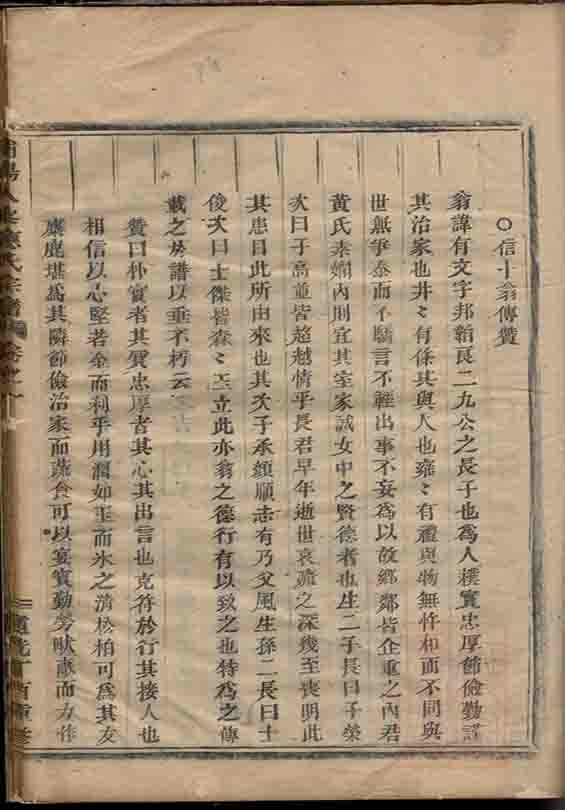 ○信十翁傳贊
翁諱有文字邦韜良二九公之長子也為人樸實忠厚節儉勤謹
其治家也井〻有條其與人也雍〻有禮與物無忤和而不同與
世無爭泰而不驕言不輕出事不妄為以故鄉鄰皆企重之內君
黃氏素嫻內則宜其室家誠女中之賢德者也生二子長曰子榮
次曰子高並皆超越情乎長君早年逝世哀疏之深幾至喪明此
其患目此所由來也其次子承顏順志有乃父風生孫二長曰士
俊次曰士傑皆森〻玉立此亦翁之德行有以致之也特為之傳
載之於譜以垂不朽云
贊曰朴實者其質忠厚者其心其出言也克符於行其接人也
相信以心堅若金而利乎用潤如玉而氷之清松柏可為其友
麋鹿堪為其隣節儉治家而蔬食可以宴賓勤勞畎畝而力作
氏宗譜
道光丁酉重修